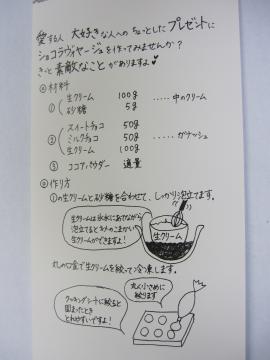 愛する人 大好きな人への ちょっとした プレゼントに
ショコラヴィヤージュを作ってみませんか？
きっと 素敵なことがありますよ♥
◎材料
① 生クリーム 100g ..... 中のクリーム
砂糖 5g
② スイートチョコ 50g
ミルクチョコ 50g ..... ガナッシュ
生クリーム 100g
③ ココアパウダー 適量
◎作り方
①の生クリームと砂糖を合わせて、しっかり泡立てます。
生クリームは氷水にあてながら
泡立てるとキメのこまかい
生クリームができますよ！
生クリーム
丸い口金で生クリームを絞って冷凍します。
丸く小さめに
絞ります
クッキングシートに絞ると
固まったとき
とれやすいですよ！